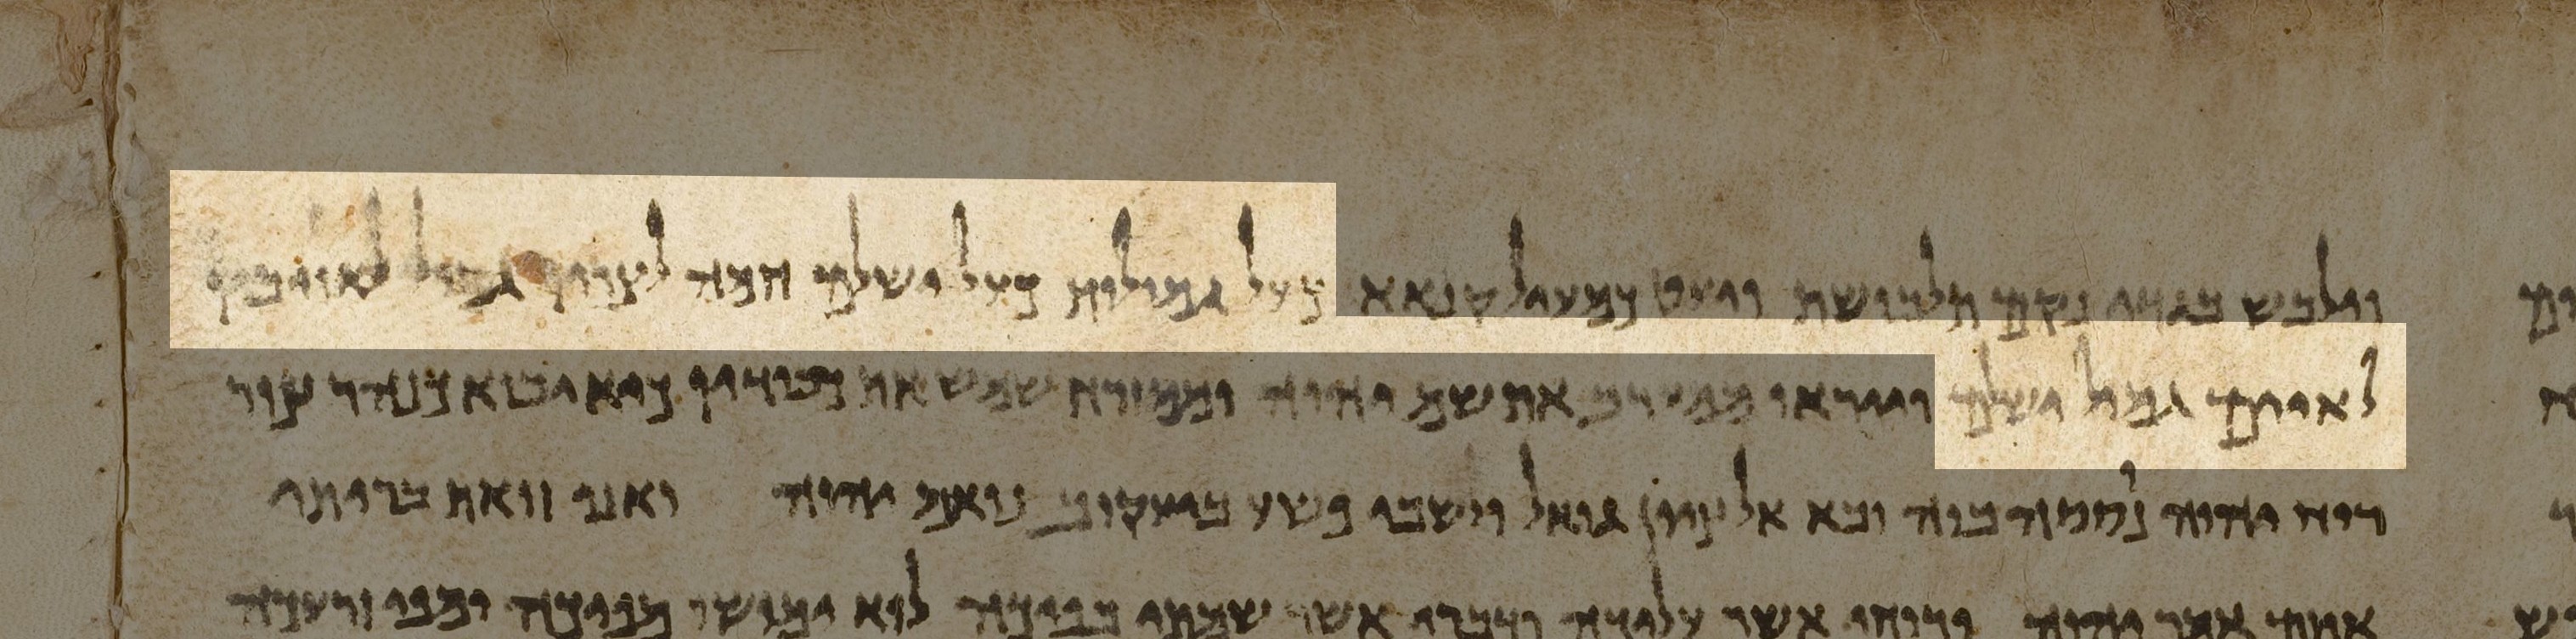 וילבש בגדי נקם תלבושת ויעט כמעיל קנאא כעל גמולות כעל ישלם חמה לצריו גמול לאויביו
לאיים גמול ישלם וייראו ממערב את שם יהוה וממזרח שמש את כבודו כיא יבוא כנהר צור
רוח יהוה נססה בוה ובא אל ציון גואל ולשבי פשע ביעקוב נואם יהוה ואני זואת בריתי
אותם אמר יהוה רוחי אשר עליכה ודברי אשר שמתי בפיכה לוא ימושו מפיכה ומפי זרעכה